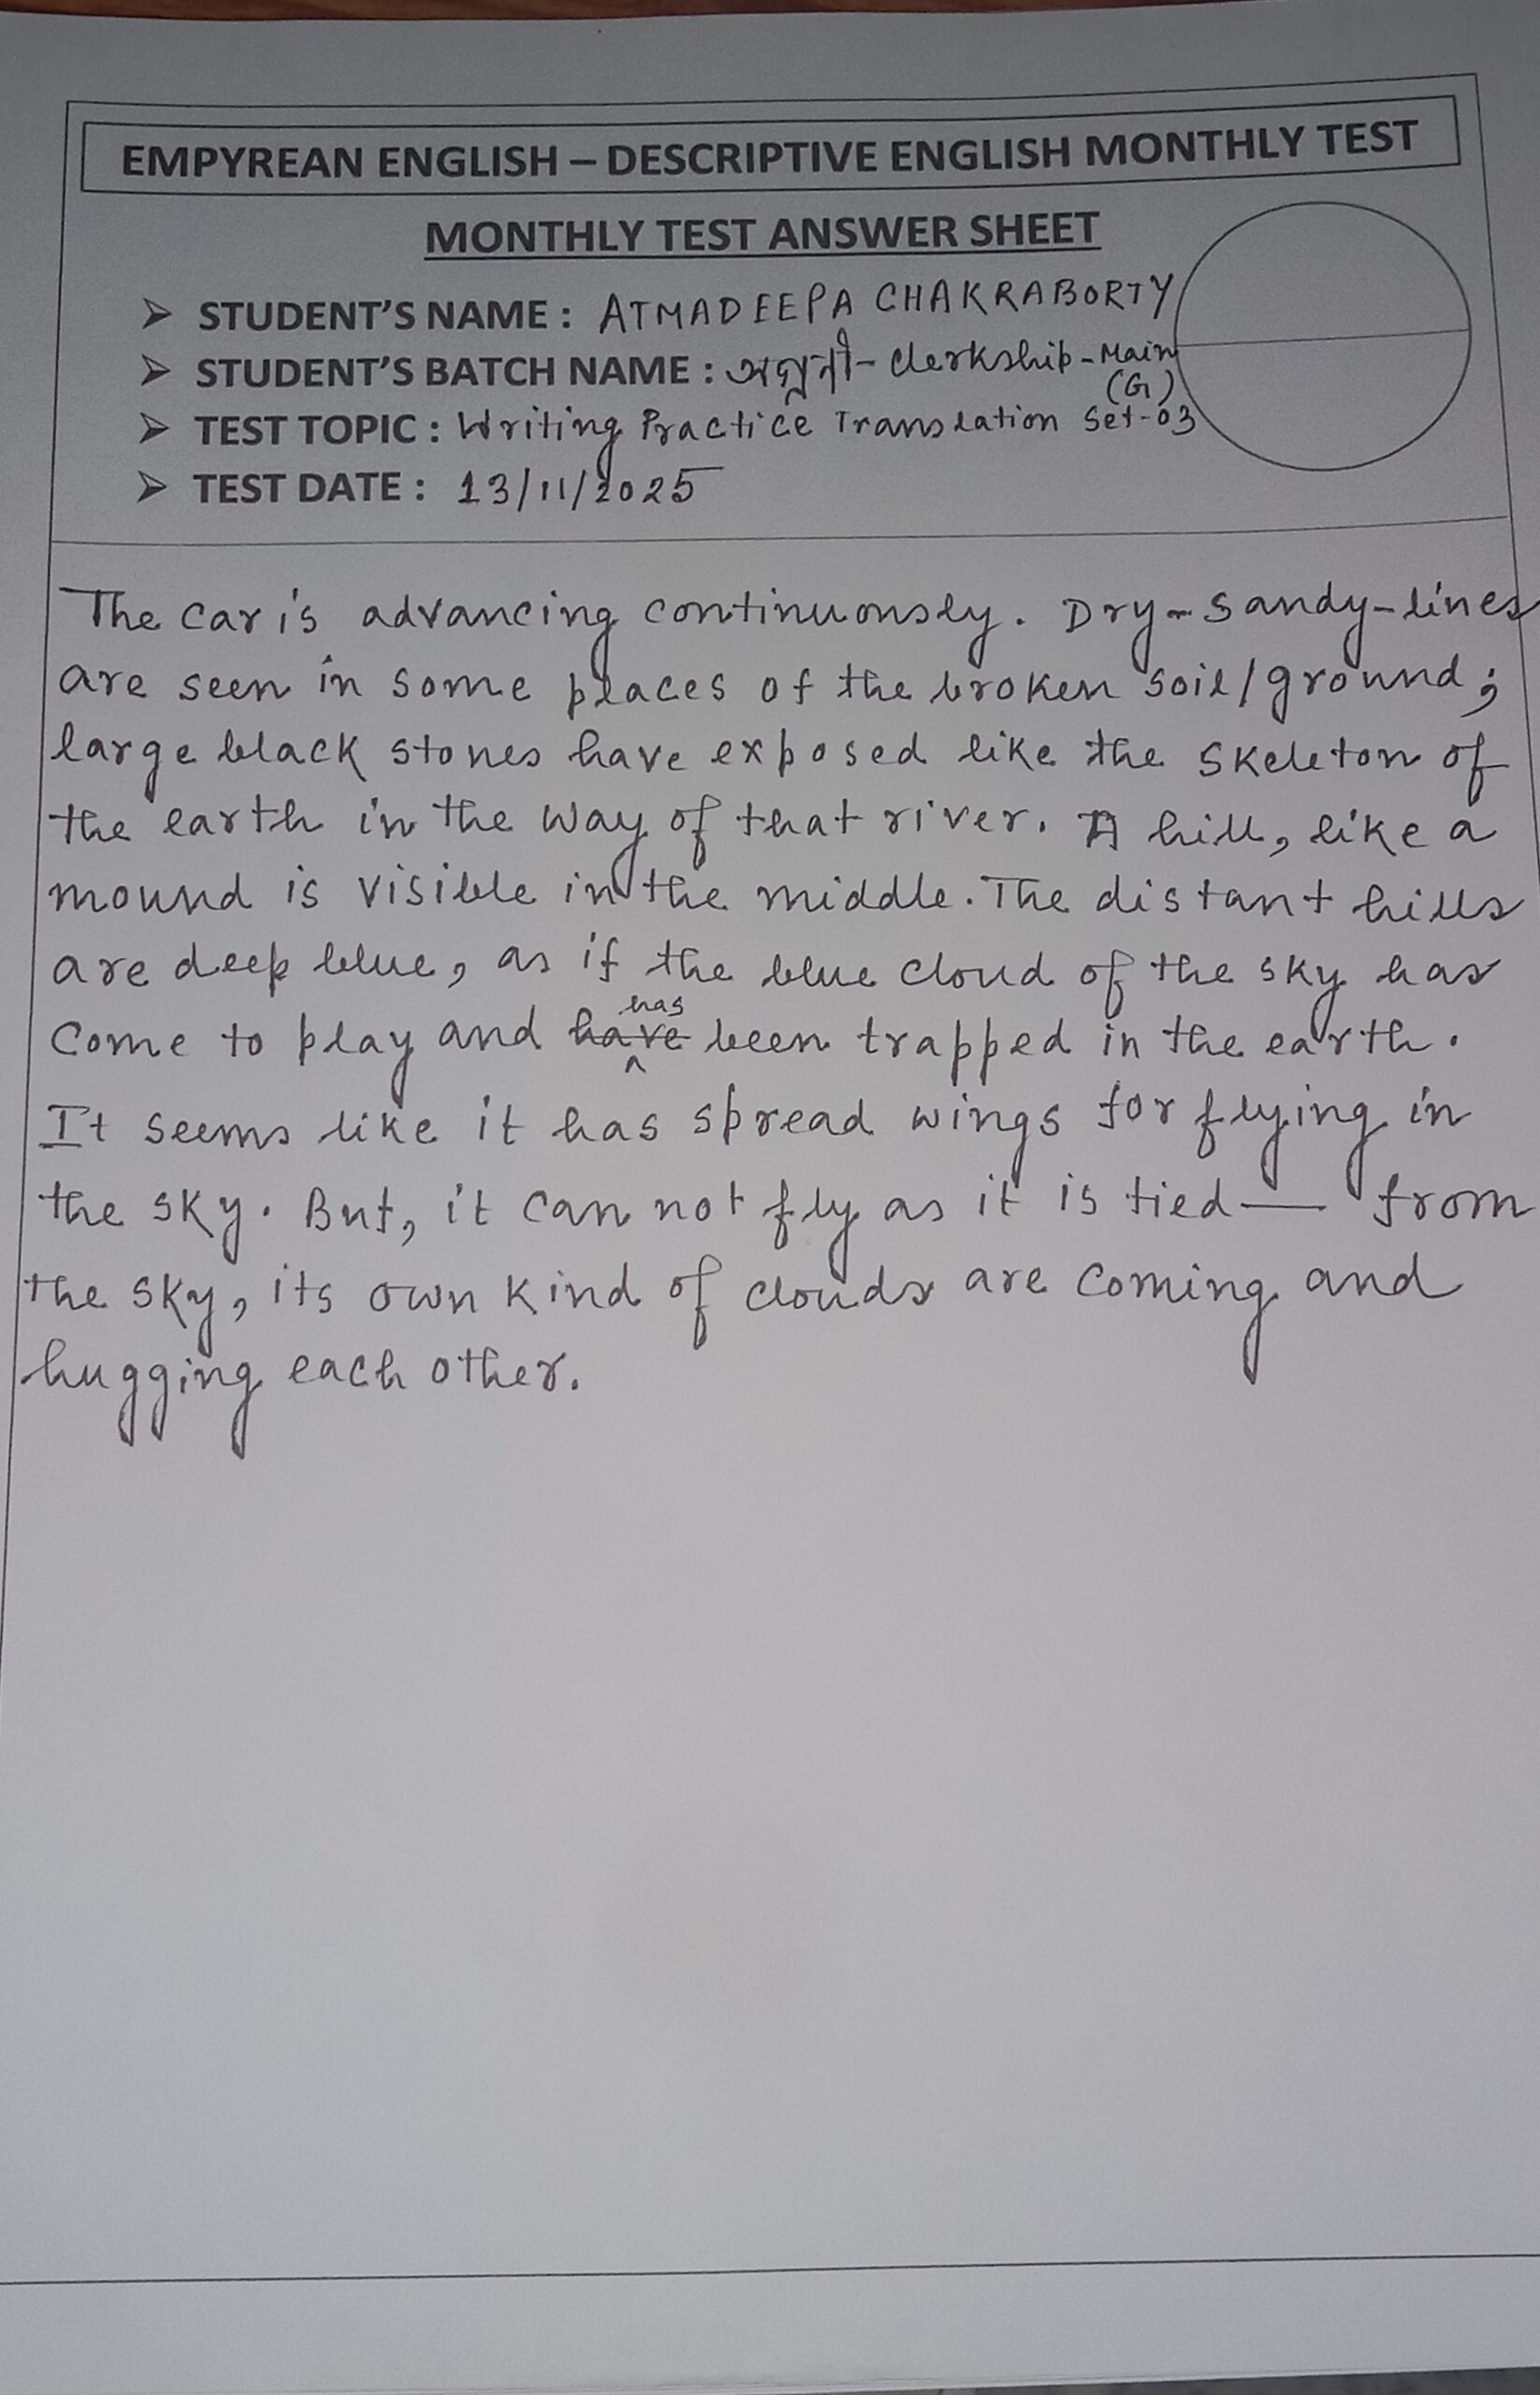 EMPYREAN ENGLISH – DESCRIPTIVE ENGLISH MONTHLY TEST
MONTHLY TEST ANSWER SHEET
➢ STUDENT'S NAME : ATMADEEPA CHAKRABORTY
➢ STUDENT'S BATCH NAME : - Clerkship - Main
(G)
➢ TEST TOPIC : Writing Practice Translation Set-03
➢ TEST DATE : 13/11/2025
The car is advancing continuously. Dry-sandy-lines
are seen in some places of the broken soil/ground;
large black stones have exposed like the skeleton of
the earth in the way of that river. A hill, like a
mound is visible in the middle. The distant hills
are deep blue, as if the blue cloud of the sky has
has
come to play and have been trapped in the earth.
It seems like it has spread wings for flying in
the sky. But, it can not fly as it is tied — from
the sky, its own kind of clouds are coming and
hugging each other.